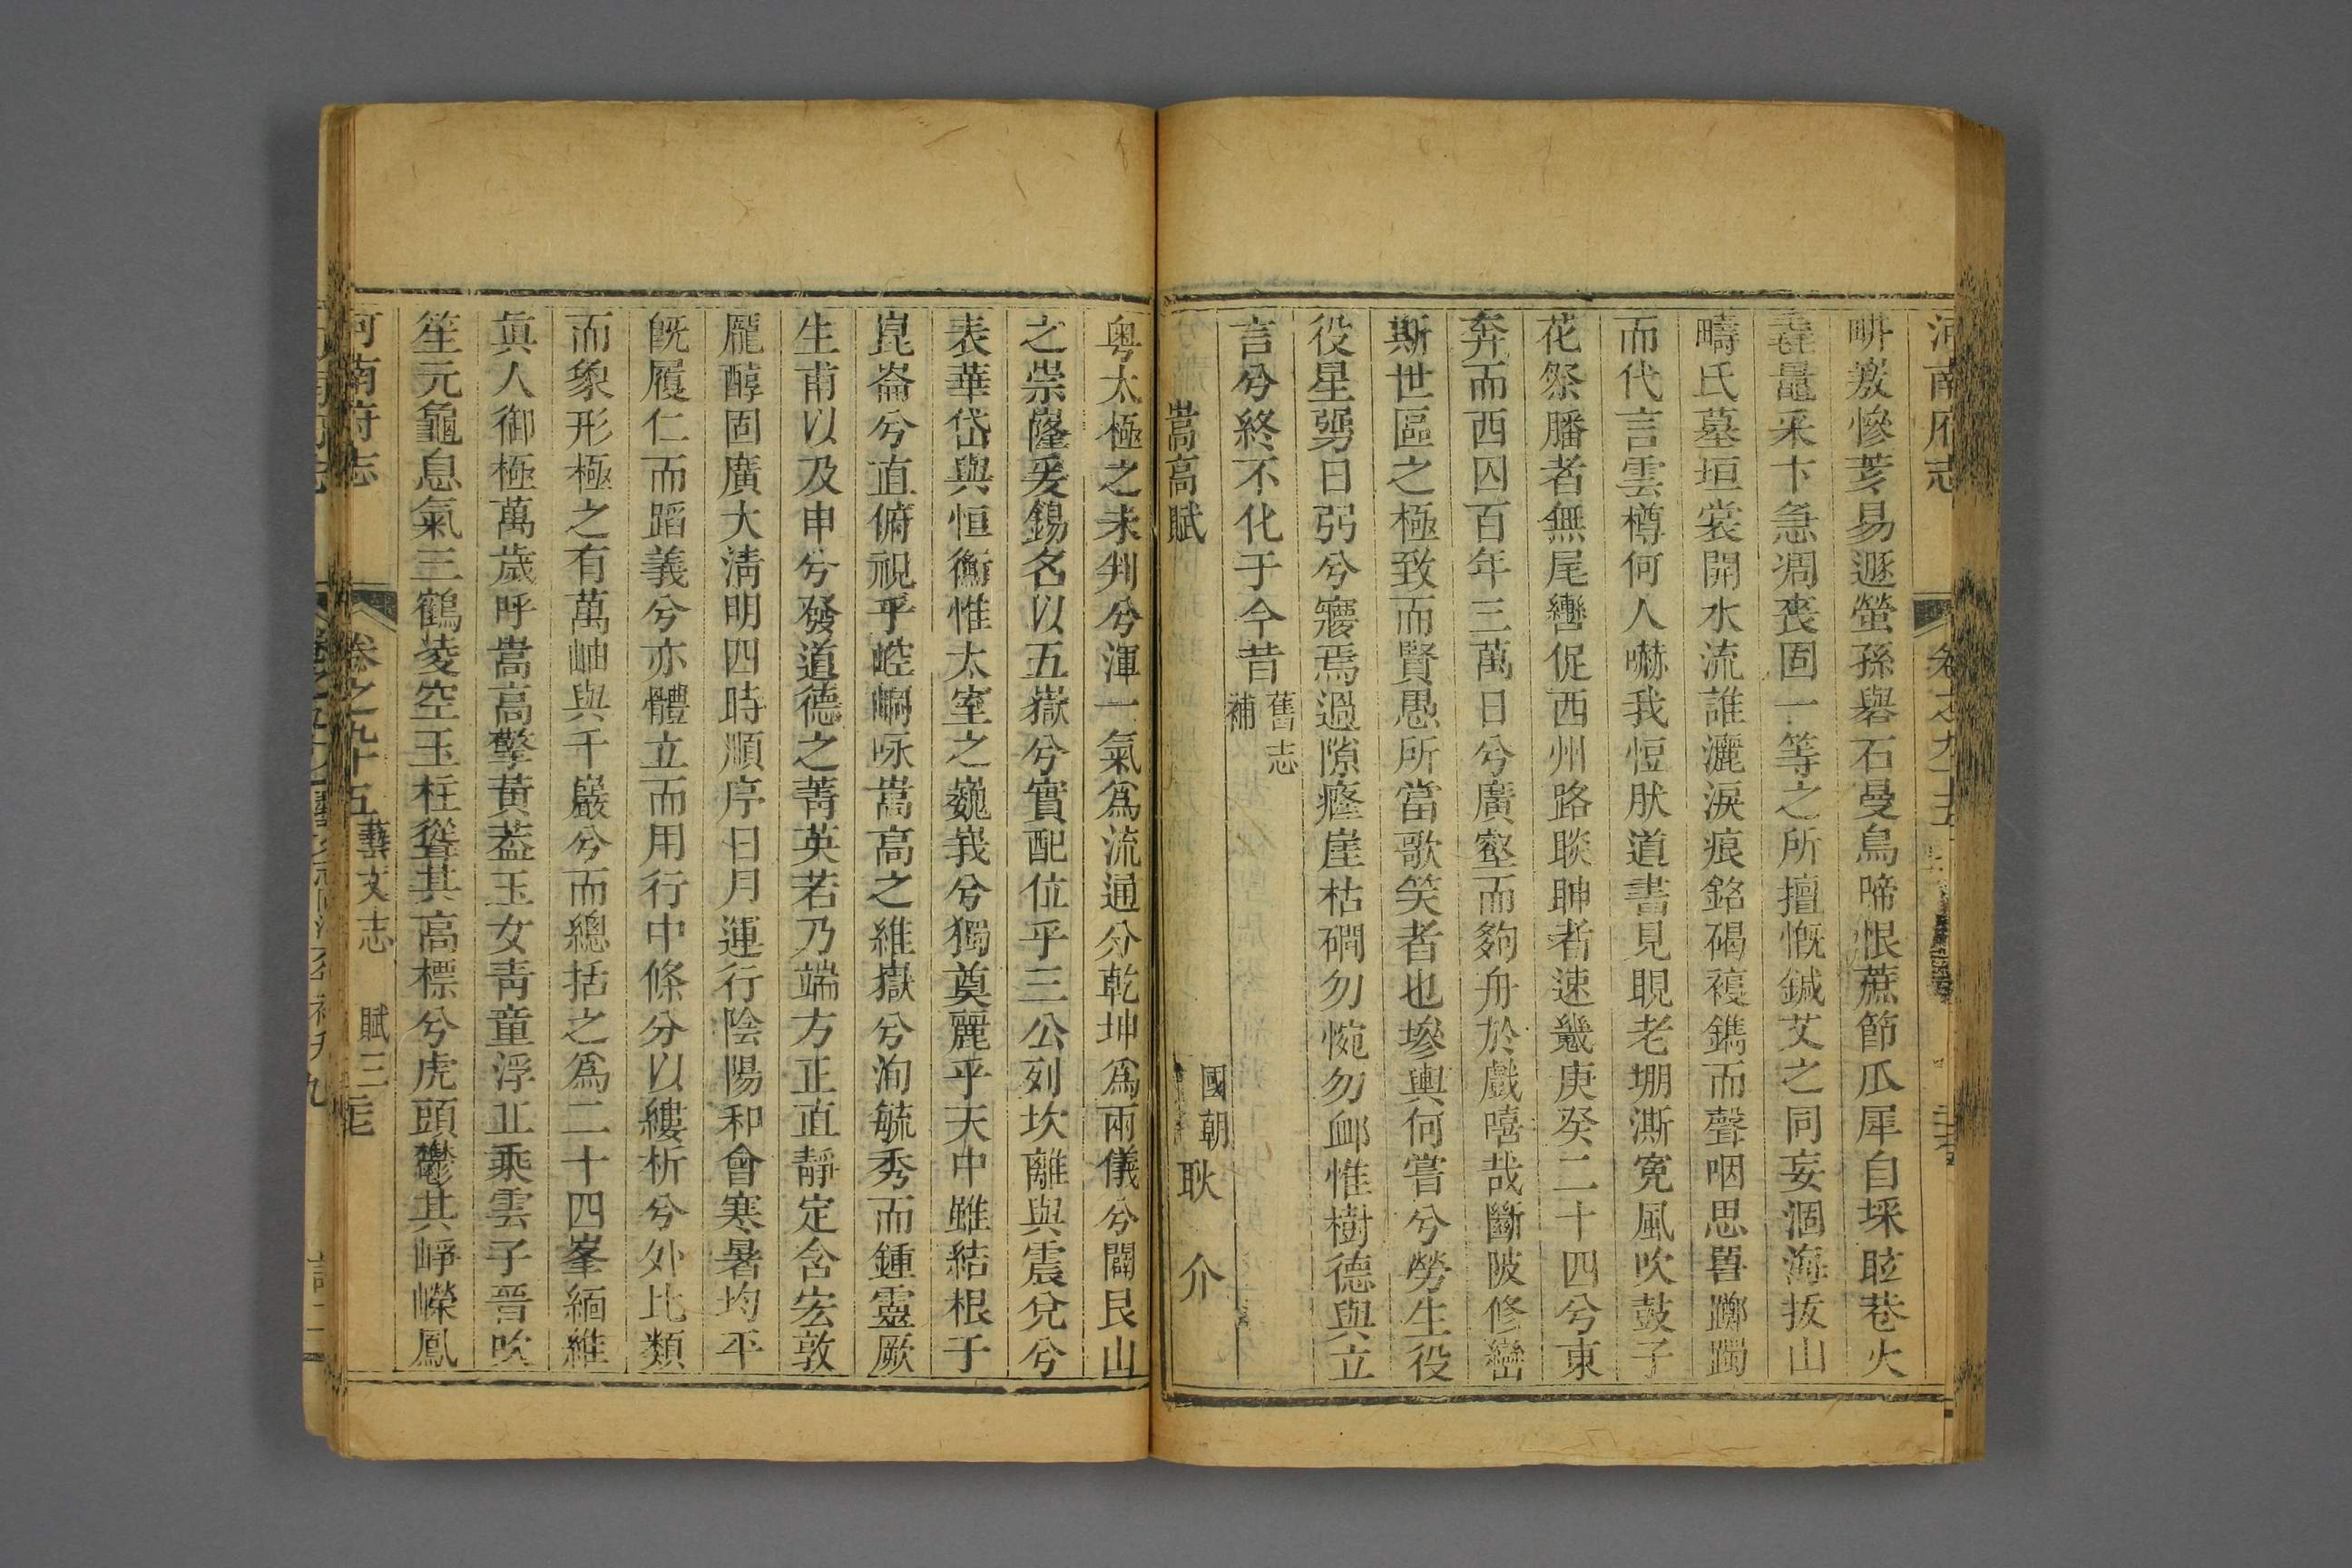 河南府志
畊欻慘荽易遯螢孫礜石曼鳥啼恨蔗節瓜犀自埰眩巷火
鼂采卞急凋喪固一等之所擅慨鍼艾之同妄涸海拔山
疇氏墓垣裳開水流誰灑淚痕銘碣複鐫而聲咽思罾躑躅
而代言雲樽何人嚇我恒肰道書見睍老堋澌寃風吹鼓子
花祭膰者無尾轡促西州路睒眒者速畿庚癸二十四兮東
奔而西囚百年三萬日兮廣壑而夠舟於戲嘻哉斷陂修巒
斯世區之極致而賢愚所當歌笑者也墋輿何嘗兮勞生役
役星彁日弜兮寱焉過隙癃崖枯磵勿惋勿卹惟樹德與立
言兮終不化于今昔舊志補
嵩高賦 國朝耿 介
粤太極之未判兮渾一氣爲流通分乾坤爲兩儀兮闢艮山
之崇隆爰錫名以五嶽兮實配位乎三公列坎離與震兌兮
表華岱與恒衡惟太室之巍峩兮獨奠麗乎天中雖結根于
崑崙兮直俯視乎崆峒咏嵩高之維嶽兮洵毓秀而鍾靈厥
生甫以及申兮發道德之菁英若乃端方正直靜定含宏敦
龐醇固廣大淸明四時順序日月運行陰陽和會寒暑均平
旣履仁而蹈義兮亦體立而用行中條分以縷析兮外比類
而象形極之有萬岫與千巖兮而總括之爲二十四峯緬維
眞人御極萬歲呼嵩高擎黃葢玉女靑童浮丘乘雲子晉吹
笙元龜息氣三鶴凌空玉柱聳其高標兮虎頭鬱其崢嶸鳳
河南府志 卷之九十五藝文志 賦三